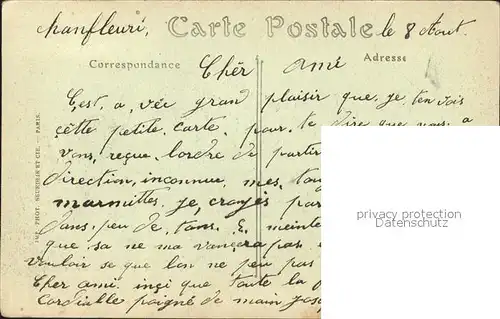 chanfleuri, Carte Postale le 8 Aout.
Correspondance Adresse
Chèr amé
C,est, a, véc grand plaisir que, je, ten vois
cètte petite carte, pour, te dire que nous, a
vons, reçue, lordre de partir
direction, inconnue, mes, tou
marmittes, je, croyés par
dans, peu de, tams. E, meinte
que sa ne ma vancera pas
vouloir se que lon ne peu pas
Cher amé inçi que toute la
cordiable poigné de main
IMP. PHOT. NEURDEIN ET CIE. — PARIS.
privacy protection
Datenschutz